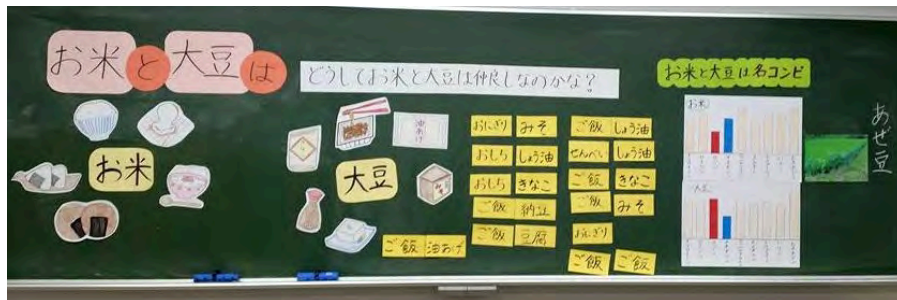 お米と大豆は
どうしてお米と大豆は仲良しなのかな？
お米と大豆は名コンビ
あぜ豆
お米
大豆
油あげ
おにぎり みそ
おもち しょう油
おもち きなこ
ご飯 納豆
ご飯 豆腐
ご飯 油あげ
ご飯 しょう油
せんべい しょう油
ご飯 きなこ
ご飯 みそ
おにぎり
ご飯 ご飯
お米
大豆